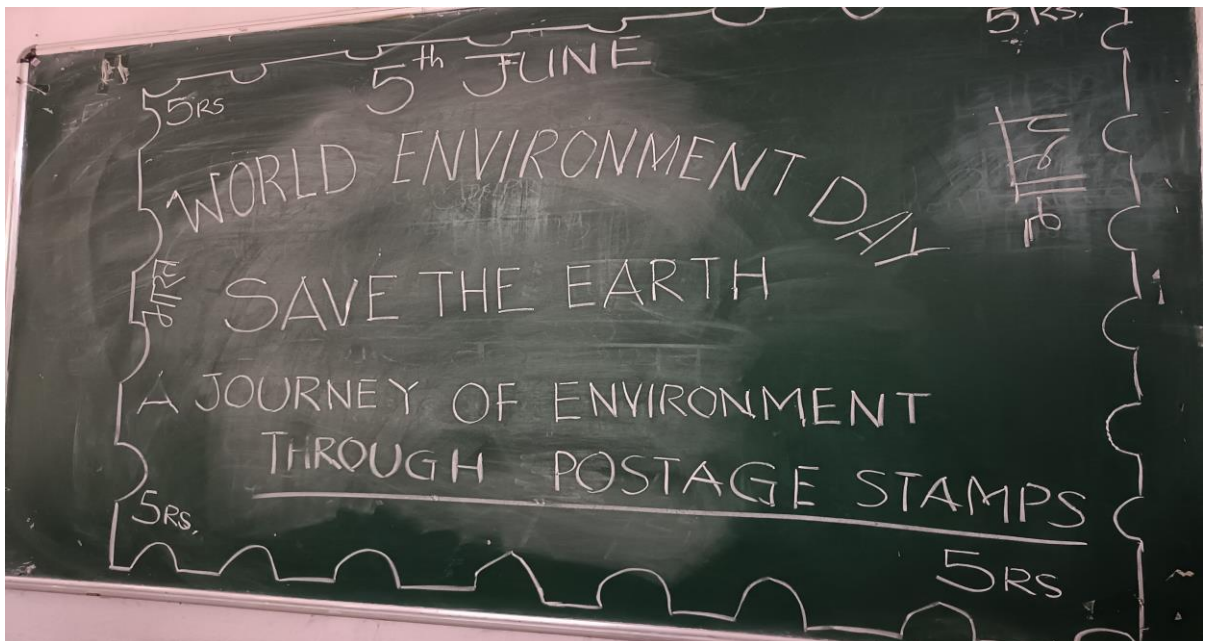 5 RS.
5th JUNE
5 RS
WORLD ENVIRONMENT DAY
भारत
SAVE THE EARTH
A JOURNEY OF ENVIRONMENT
THROUGH POSTAGE STAMPS
5 RS.
5 RS